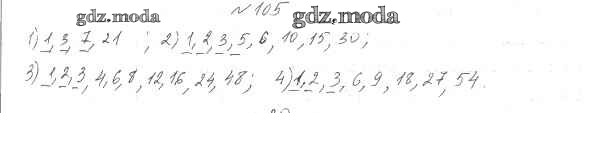 gdz.moda №105 gdz.moda
1) 1, 3, 7, 21 ; 2) 1, 2, 3, 5, 6, 10, 15, 30;
3) 1, 2, 3, 4, 6, 8, 12, 16, 24, 48; 4) 1, 2, 3, 6, 9, 18, 27, 54.